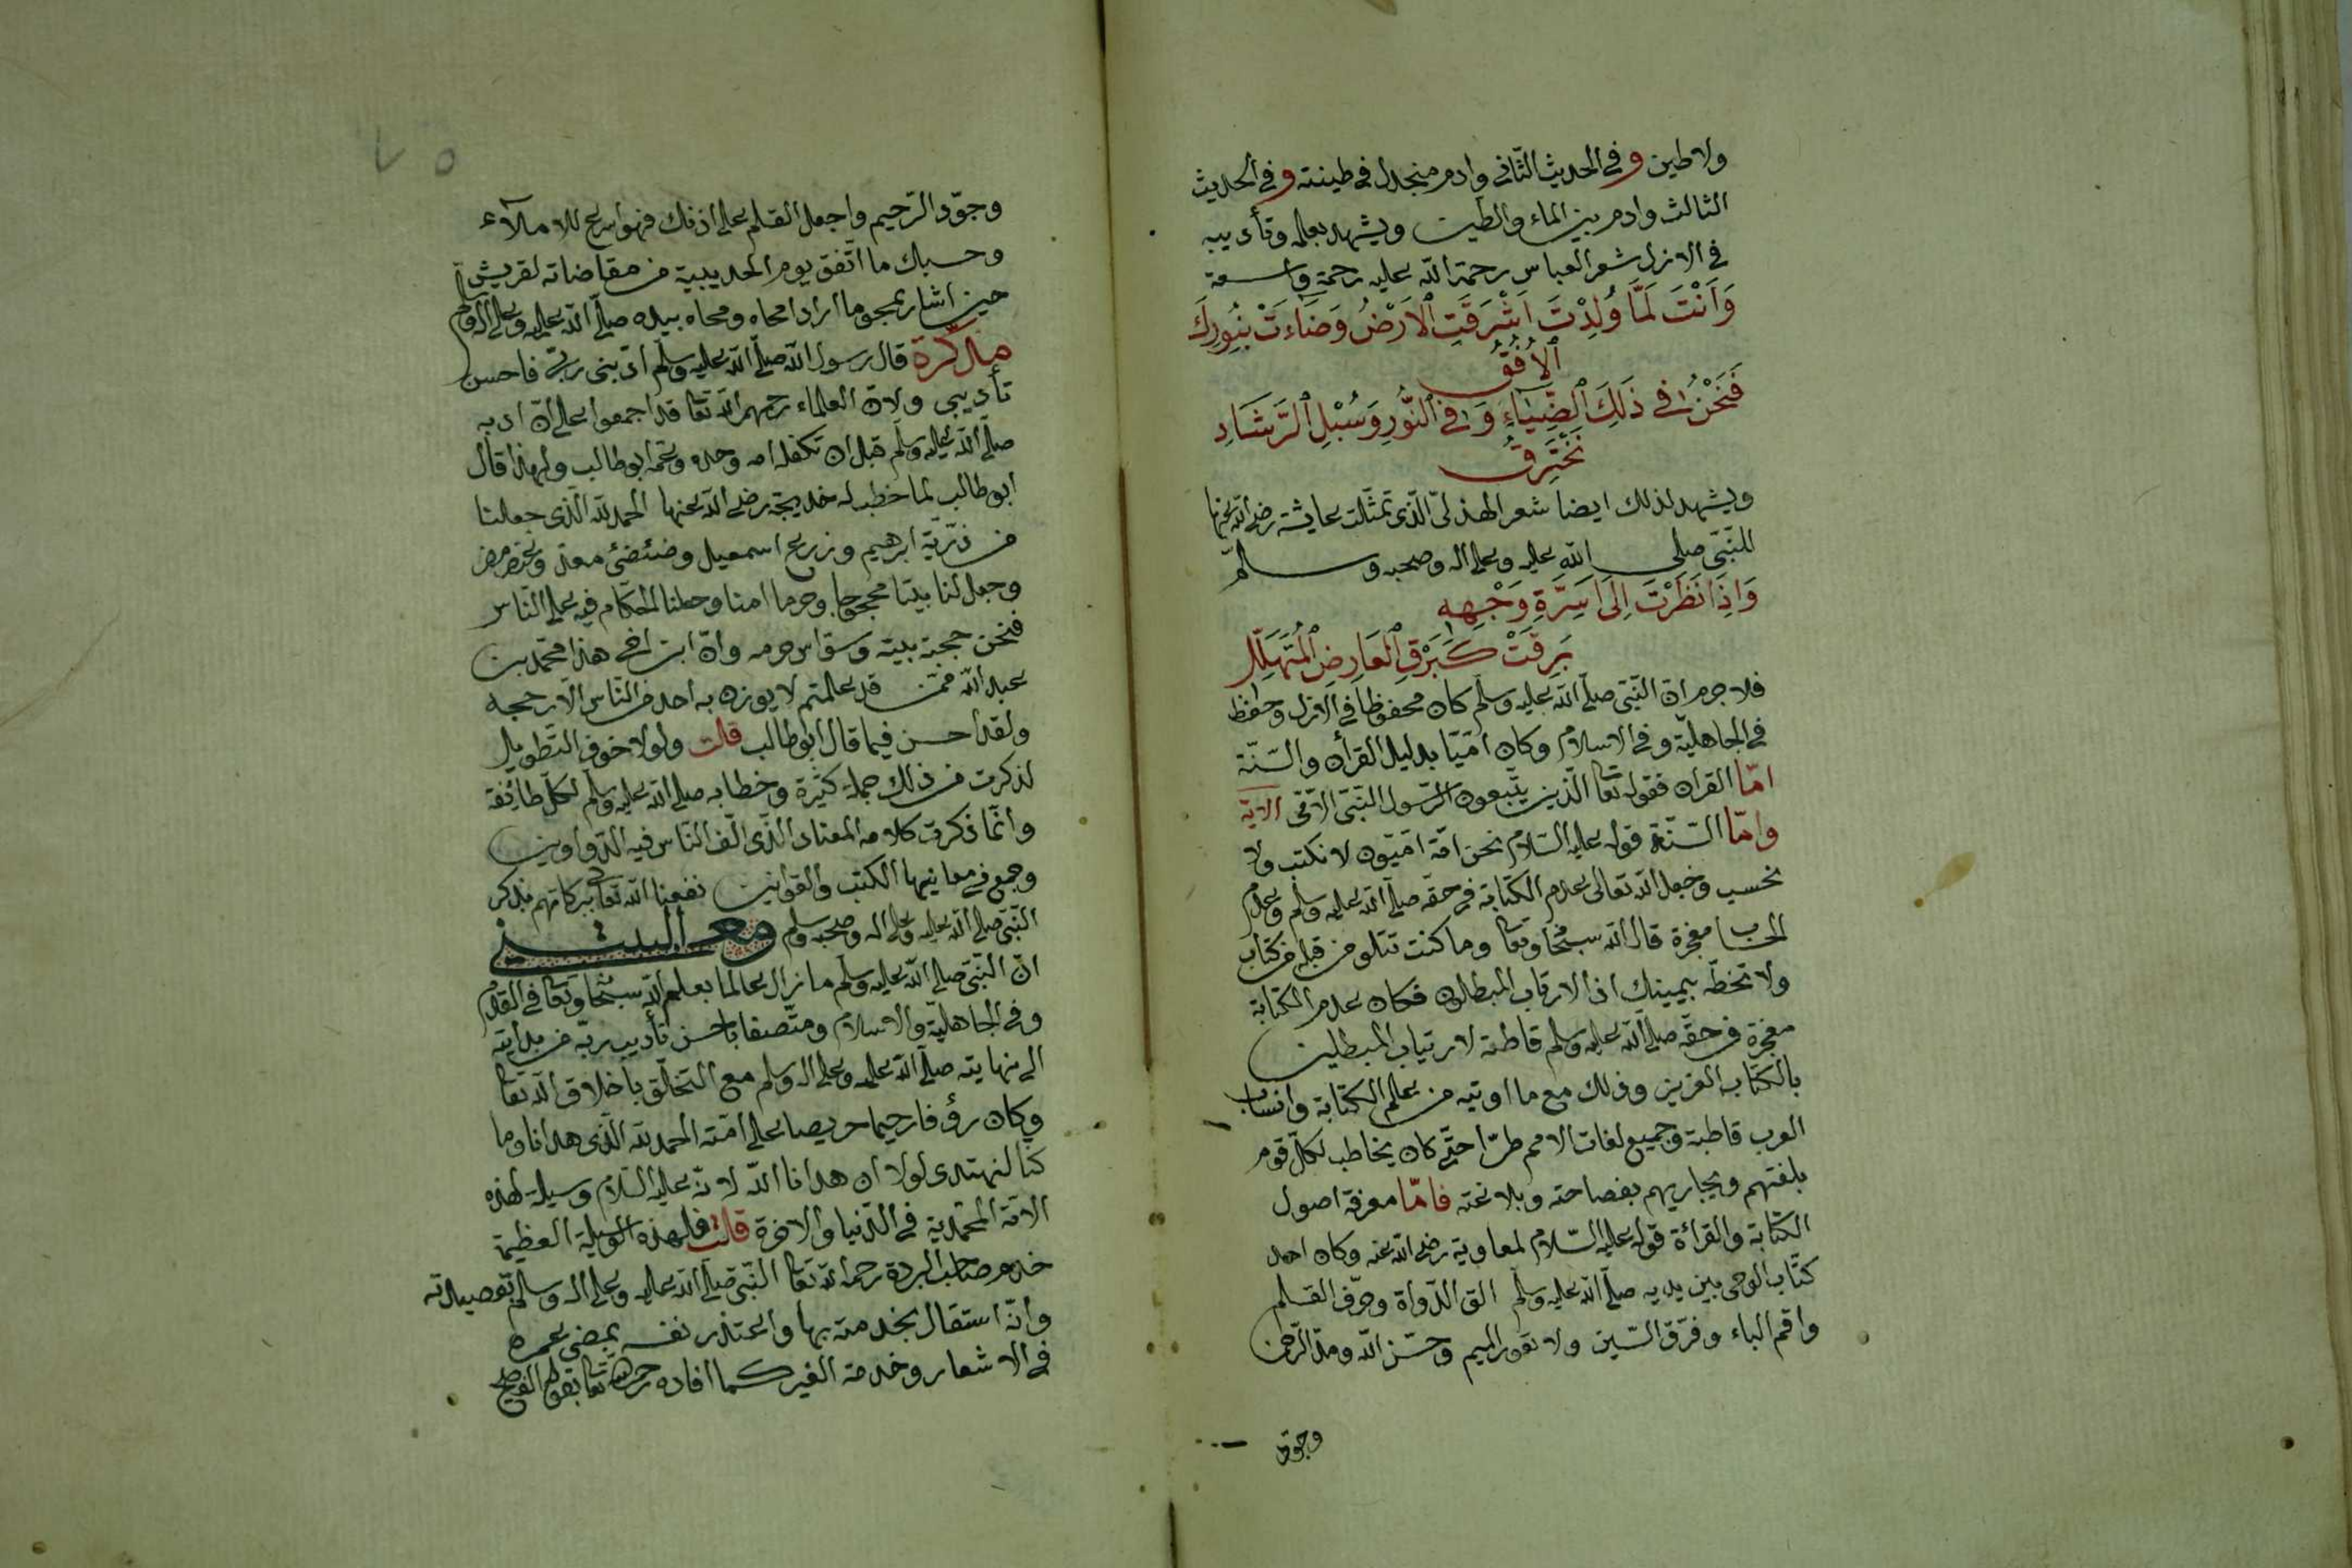 ولا طين وفي الحديث الثاني وادم منجدل في طينته وفي الحديث
الثالث وادم بين الماء والطين ويشهد بعلمه وتأديبه
في الازل شعر العباس رحمة الله عليه رحمة واسعة
وَاَنْتَ لَمَّا وُلِدْتَ اَشْرَقَتِ الْاَرْضُ وَضَاءَتْ بِنُورِكَ
الْاُفُقُ
فَنَحْنُ فِي ذَلِكَ الضِّيَاءِ وَفِي النُّورِ وَسُبْلِ الرَّشَادِ
نَخْتَرِقُ
ويشهد لذلك ايضا شعر الهذلىّ الّذى تمثّلت عايشة رضي الله عنها
للنّبىّ صلى الله عليه وعلى اله وصحبه وسلم
وَاِذَا نَظَرْتَ اِلَى اَسِرَّةِ وَجْهِهِ
بَرَقَتْ كَبَرْقِ الْعَارِضِ الْمُتَهَلِّلِ
فلا جرم ان النّبىّ صلّى الله عليه وسلم كان محفوظا في الازل وحفظ
في الجاهليّة وفي الاسلام وكان امّيّا بدليل القرأن والسّنّة
امّا القران فقوله تعا الّذين يتّبعون الرّسول النّبىّ الامّى الاية
وامّا السّنّة قوله عليه السّلام نحن امّة امّيّون لا نكتب ولا
نحسب وجعل الله تعالى عدم الكتابة في حقّه صلّى الله عليه وسلم وعدم
الحساب معجزة قال الله سبحا وتعا وما كنت تتلو من قبله من كتاب
ولا تخطّه بيمينك اذا لارتاب المبطلون فكان عدم الكتابة
معجزة في حقّه صلّى الله عليه وسلم قاطعة لارتياب المبطلين
بالكتاب العزيز وذلك مع ما اوتيه من علم الكتابة وانساب
العرب قاطبة وجميع لغات الامم طرّا حتّى كان يخاطب لكلّ قوم
بلغتهم ويجاريهم بفصاحته وبلاغته فامّا معرفة اصول
الكتابة والقرائة قوله عليه السّلام لمعاوية رضي الله عنه وكان احد
كتّاب الوحى بين يديه صلّى الله عليه وسلم الق الدّواة وحرّف القلم
واقم الباء وفرّق السّين ولا تعور الميم وحسّن الله ومدّ الرّحمن
وجوّد
٧٥
وجوّد الرّحيم واجعل القلم على اذنك فهو اسرع للاملآء
وحسبك ما اتّفق يوم الحديبية من مقاضاته لقريش
حين اشار بمحو ما اراد امحاه ومحاه بيده صلّى الله عليه وعلى اله وسلم
مذكرة قال رسول الله صلّى الله عليه وسلم ادّبنى ربّى فاحسن
تأديبى ولانّ العلماء رحمهم الله تعا قد اجمعوا على انّ ادبه
صلّى الله عليه وسلم قبل ان تكفله امه وجده وعمّه ابو طالب ولهذا قال
ابو طالب لما خطب له خديجة رضي الله عنها الحمد لله الّذى جعلنا
من ذرّيّة ابرهيم وزرع اسمعيل وضئضئ معدّ وعنصر مضر
وجعل لنا بيتا محجوجا وحرما امنا وجعلنا الحكّام فيه على النّاس
فنحن حجبة بيته وسوّاس حرمه وانّ ابن اخى هذا محمّد بن
عبد الله ممّن قد علمتم لا يوزن به احد من النّاس الّا رجحه
ولقد احسن فيما قال ابو طالب قلت ولولا خوف التّطويل
لذكرت من ذلك جملة كثيرة وخطابه صلى الله عليه وسلم لكلّ طائفة
وانّما ذكرت كلامه المعتاد الّذى الّف النّاس فيه الدّواوين
وجمع في معانيها الكتب والقوانين نفعنا الله تعا ببركاتهم بذكر
النّبىّ صلّى الله عليه وعلى اله وصحبه وسلم
انّ النّبىّ صلى الله عليه وسلم ما زال عالما بعلم الله سبحا وتعا في القدم
وفي الجاهليّة والاسلام ومتّصفا باحسن تأديب ربّه من بدايته
الى نهايته صلّى الله عليه وعلى اله وسلم مع التخلّق باخلاق الله تعا
وكان رؤفا رحيما حريصا على امّته الحمد لله الّذى هدانا وما
كنّا لنهتدى لولا ان هدانا الله لانّه عليه السّلام وسيلة لهذه
الامّة المحمّدية في الدّنيا والاخرة قلت فلهذه الوسيلة العظيمة
خدم صاحب البردة رحمه الله تعا النّبىّ صلّى الله عليه وعلى اله وسلم
وانّه استقال بخدمته بها واعتذر نفسه بمضى عمره
في الاشعار وخدمة الغير كما افاده رحمه الله تعا بقوله الفصيح